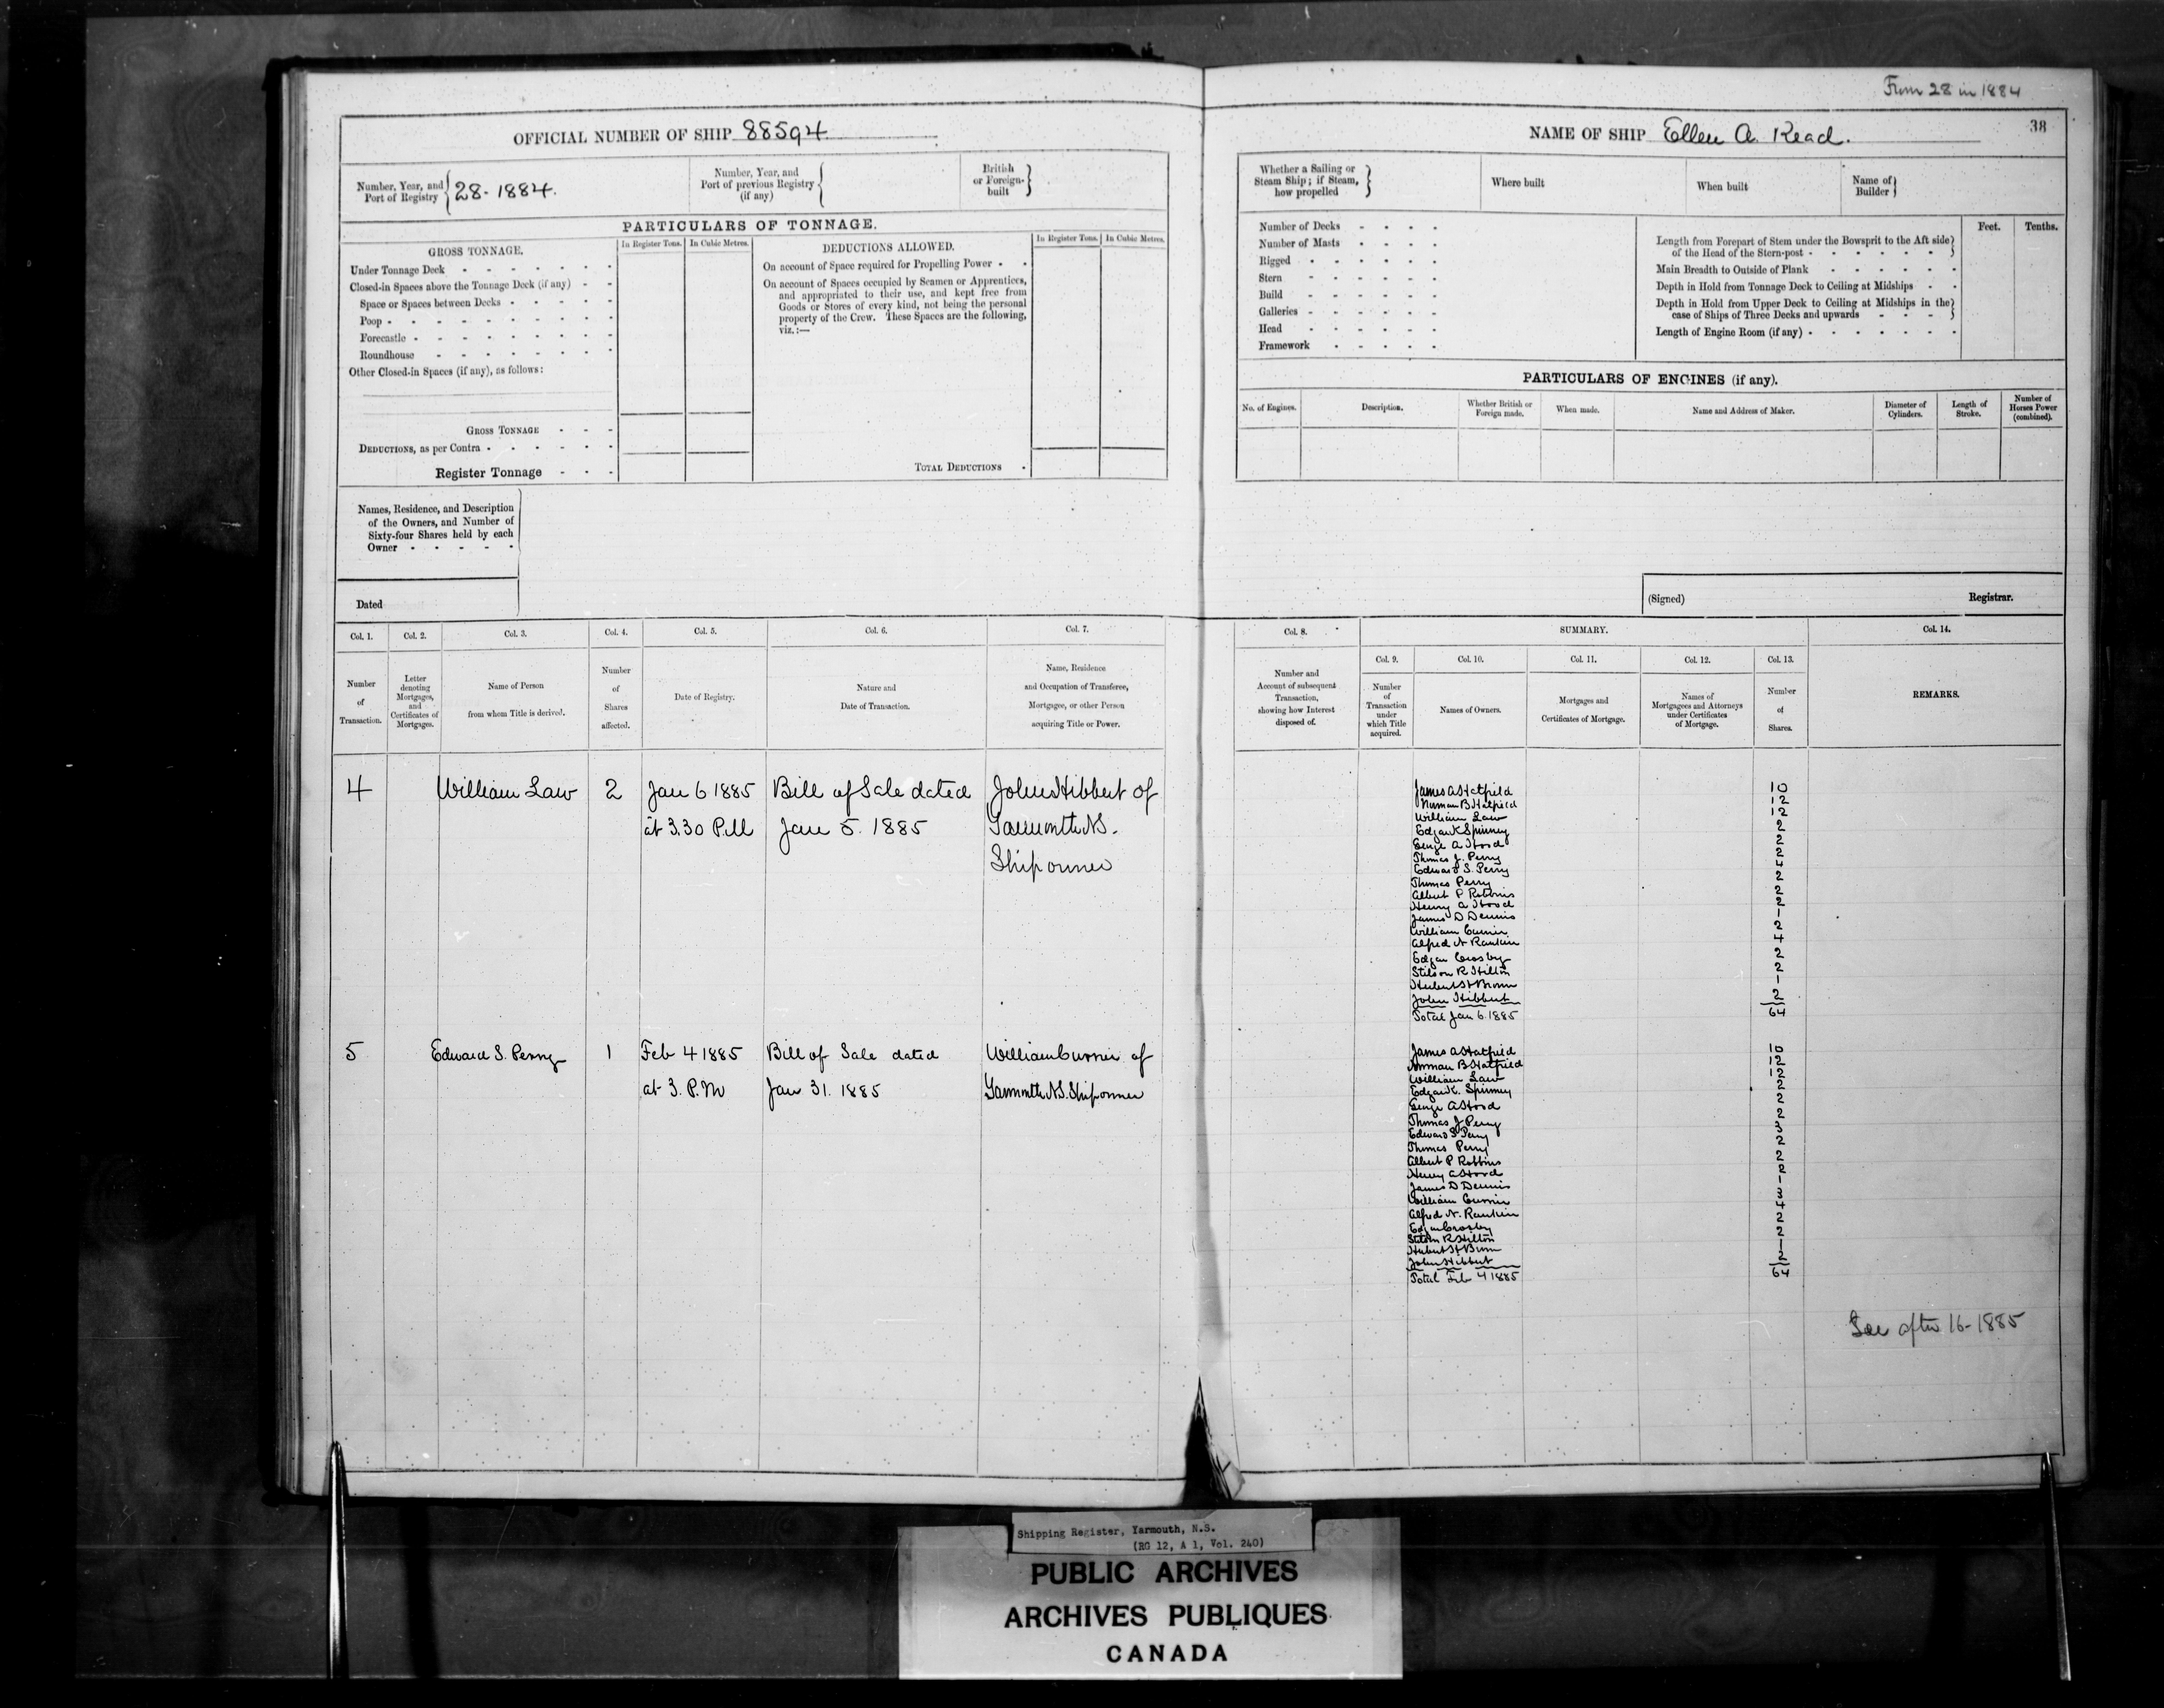 From 28 in 1884
OFFICIAL NUMBER OF SHIP 88594
NAME OF SHIP Ellen A. Read.
38
Number, Year, and Port of Registry 28-1884.
Number, Year, and Port of previous Registry (if any)
British or Foreign-built
Whether a Sailing or Steam Ship; if Steam, how propelled
Where built
When built
Name of Builder
PARTICULARS OF TONNAGE.
GROSS TONNAGE.
In Register Tons.
In Cubic Metres.
DEDUCTIONS ALLOWED.
In Register Tons.
In Cubic Metres.
Under Tonnage Deck
Closed-in Spaces above the Tonnage Deck (if any)
Space or Spaces between Decks
Poop
Forecastle
Roundhouse
Other Closed-in Spaces (if any), as follows:
GROSS TONNAGE
DEDUCTIONS, as per Contra
Register Tonnage
On account of Space required for Propelling Power
On account of Spaces occupied by Seamen or Apprentices,
and appropriated to their use, and kept free from
Goods or Stores of every kind, not being the personal
property of the Crew. These Spaces are the following,
viz.:—
TOTAL DEDUCTIONS
Number of Decks
Number of Masts
Rigged
Stern
Build
Galleries
Head
Framework
Feet.
Tenths.
Length from Forepart of Stem under the Bowsprit to the Aft side
of the Head of the Stern-post
Main Breadth to Outside of Plank
Depth in Hold from Tonnage Deck to Ceiling at Midships
Depth in Hold from Upper Deck to Ceiling at Midships in the
case of Ships of Three Decks and upwards
Length of Engine Room (if any)
PARTICULARS OF ENGINES (if any).
No. of Engines.
Description.
Whether British or Foreign made.
When made.
Name and Address of Maker.
Diameter of Cylinders.
Length of Stroke.
Number of Horses Power (combined).
Names, Residence, and Description
of the Owners, and Number of
Sixty-four Shares held by each
Owner
Dated
(Signed)
Registrar.
Col. 1.
Col. 2.
Col. 3.
Col. 4.
Col. 5.
Col. 6.
Col. 7.
Col. 8.
SUMMARY.
Col. 14.
Col. 9.
Col. 10.
Col. 11.
Col. 12.
Col. 13.
Number of Transaction.
Letter denoting Mortgages, and Certificates of Mortgages.
Name of Person from whom Title is derived.
Number of Shares affected.
Date of Registry.
Nature and Date of Transaction.
Name, Residence and Occupation of Transferee, Mortgagee, or other Person acquiring Title or Power.
Number and Account of subsequent Transaction, showing how Interest disposed of.
Number of Transaction under which Title acquired.
Names of Owners.
Mortgages and Certificates of Mortgage.
Names of Mortgagees and Attorneys under Certificates of Mortgage.
Number of Shares.
REMARKS.
4 William Law 2 Jan 6 1885 Bill of Sale dated John Hibbert of
at 3.30 P.M Jan 5. 1885 Yarmouth N.S.
Shipowner
James A Hatfield 10
Norman B Hatfield 12
William Law 12
Edgar K Spinney 2
George A Hood 2
Thomas J. Perry 2
Edward S. Perry 4
Thomas Perry 2
Albert P Robbins 2
Henry A Hood 2
James D Dennis 1
William Currier 2
Alfred N Rankin 4
Edgar Crosby 2
Stilson R Hilton 2
Hubert H Brown 1
John Hibbert 2
Total Jan 6. 1885 64
5 Edward S. Perry 1 Feb 4 1885 Bill of Sale dated William Currier of
at 3. P.M Jan 31. 1885 Yarmouth N.S. Shipowner
James A Hatfield 10
Norman B Hatfield 12
William Law 12
Edgar K. Spinney 2
George A Hood 2
Thomas J Perry 2
Edward S Perry 3
Thomas Perry 2
Albert P Robbins 2
Henry A Hood 2
James D Dennis 1
William Currier 3
Alfred N. Rankin 4
Edgar Crosby 2
Stilson R Hilton 2
Hubert H Brown 1
John Hibbert 2
Total Feb 4 1885 64
See after 16-1885
Shipping Register, Yarmouth, N.S.
(RG 12, A 1, Vol. 240)
PUBLIC ARCHIVES
ARCHIVES PUBLIQUES
CANADA